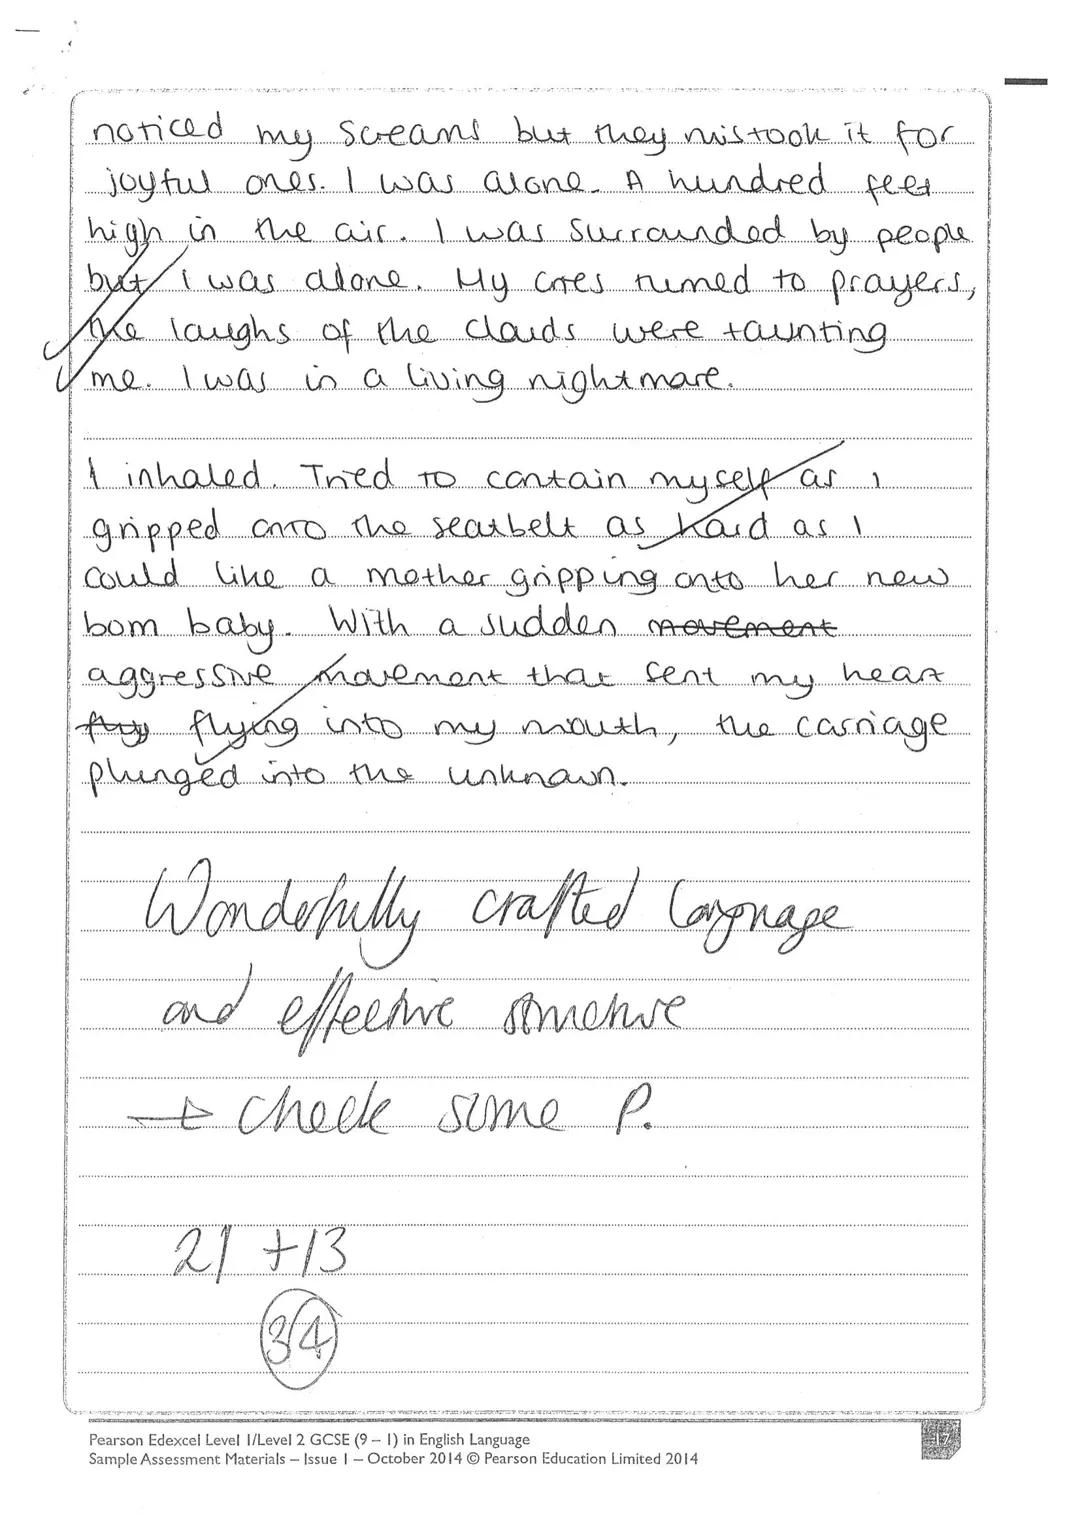 noticed my screams but they mistook it for
joyful ones. I was alone. A hundred feet
high in the air. I was surrounded by people
but I was alone. My cries turned to prayers,
the laughs of the clouds were taunting
me. I was in a living nightmare.
I inhaled. Tried to contain myself as I
gripped onto the seatbelt as hard as I
could like a mother gripping onto her new
born baby. With a sudden movement
aggressive movement that sent my heart
flying into my mouth, the carriage
plunged into the unknown.
Wonderfully crafted language
and effective structure
→ check some P.
21 + 13
34
Pearson Edexcel Level 1/Level 2 GCSE (9 – 1) in English Language
Sample Assessment Materials – Issue 1 – October 2014 © Pearson Education Limited 2014
17